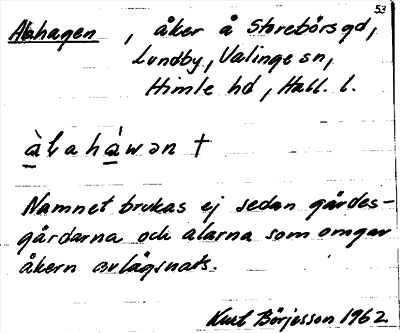 53
Alahagen, åker å Storebörsgd,
Lundby, Valinge sn,
Himle hd, Hall. l.
àlahàwən †
Namnet brukas ej sedan gärdes-
gårdarna och alarna som omgav
åkern avlägsnats.
Kurt Börjesson 1962